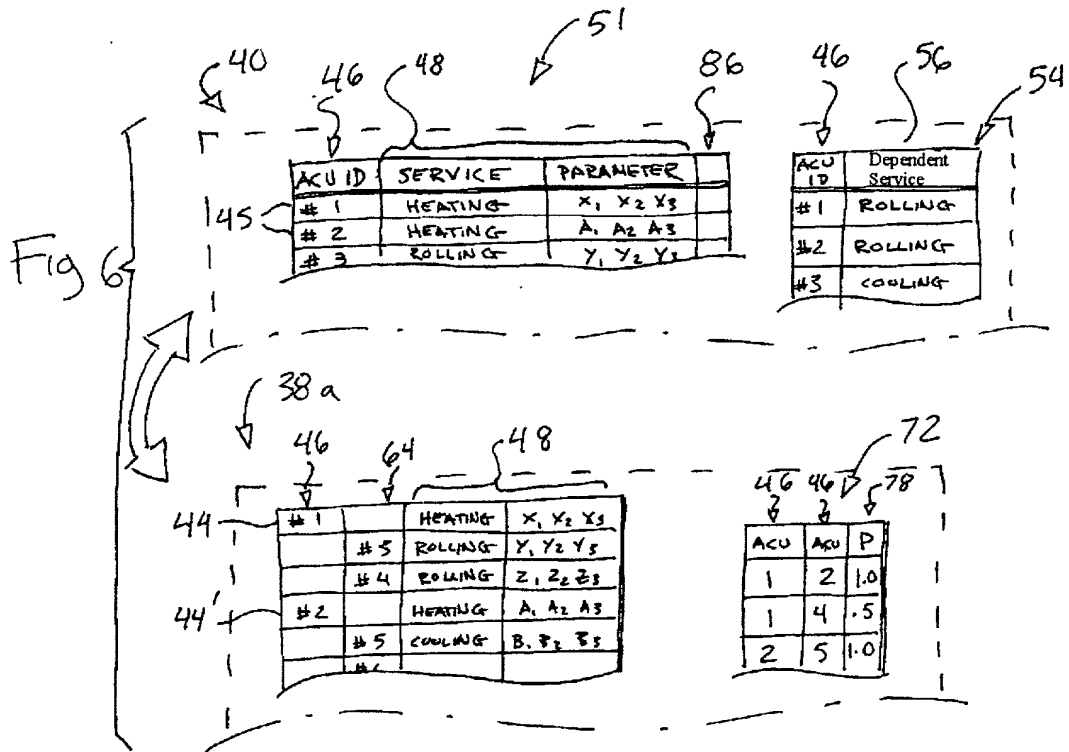 51
40 46 48 86 46 56 54
ACU ID SERVICE PARAMETER
# 1 HEATING X1 X2 X3
# 2 HEATING A1 A2 A3
# 3 ROLLING Y1 Y2 Y3
45
ACU ID Dependent Service
#1 ROLLING
#2 ROLLING
#3 COOLING
Fig 6
38a
46 64 48
44 #1 HEATING X1 X2 X3
#5 ROLLING Y1 Y2 Y3
#4 ROLLING Z1 Z2 Z3
44' #2 HEATING A1 A2 A3
#5 COOLING B1 B2 B3
72
46 46 78
ACU ACU P
1 2 1.0
1 4 .5
2 5 1.0